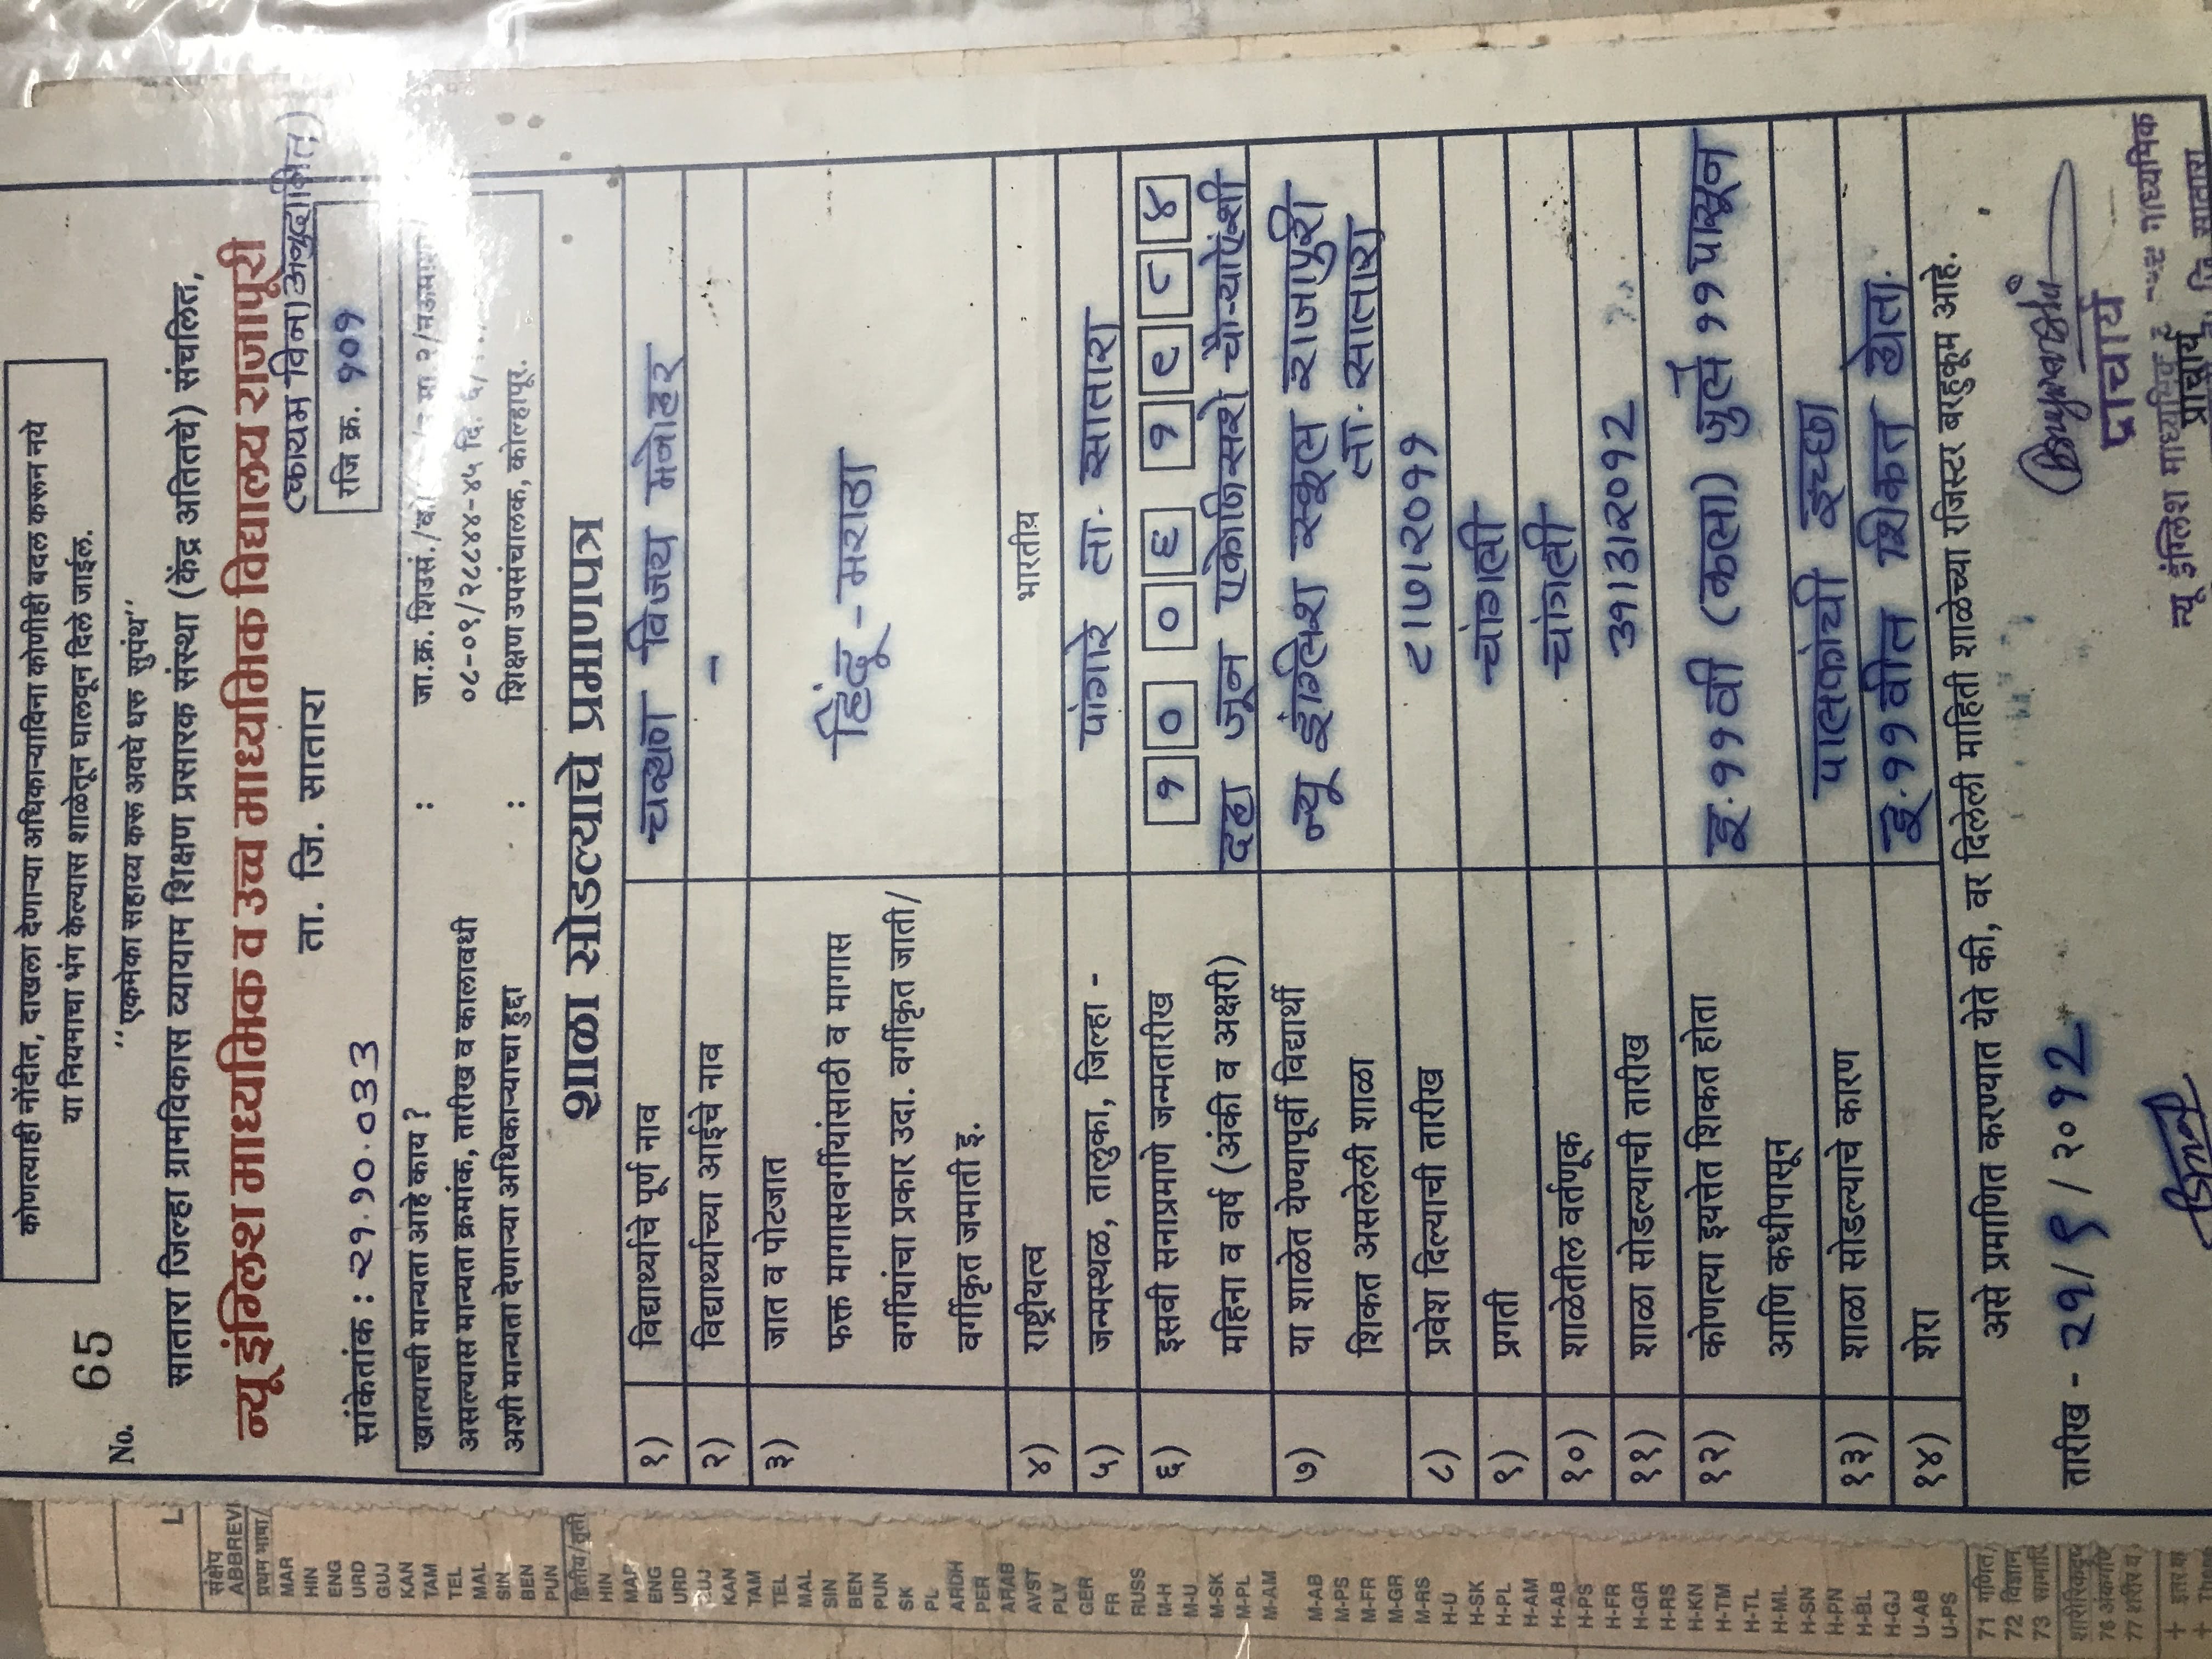 कोणत्याही नोंदीत, दाखला देणाऱ्या अधिकाऱ्याविना कोणीही बदल करून नये
या नियमाचा भंग केल्यास शाळेतून घालवून दिले जाईल.
No. 65
"एकमेका सहाय्य करू अवघे धरू सुपंथ"
सातारा जिल्हा ग्रामविकास व्यायाम शिक्षण प्रसारक संस्था (केंद्र अतितचे) संचलित,
न्यू इंग्लिश माध्यमिक व उच्च माध्यमिक विद्यालय राजापूरी
(कायम विना अनुदानीत)
ता. जि. सातारा
सांकेतांक : २१.१०.०३३
रजि क्र. १०१
खात्याची मान्यता आहे काय ? : जा.क्र. शिउसं./
असल्यास मान्यता क्रमांक, तारीख व कालावधी ०८-०९/२८८४४-४५ दि.
अशी मान्यता देणाऱ्या अधिकाऱ्याचा हुद्दा : शिक्षण उपसंचालक, कोल्हापूर.
शाळा सोडल्याचे प्रमाणपत्र
१) विद्यार्थ्याचे पूर्ण नाव विजय मनोहर
२) विद्यार्थ्याच्या आईचे नाव -
३) जात व पोटजात
फक्त मागासवर्गीयांसाठी व मागास हिंदू - मराठा
वर्गीयांचा प्रकार उदा. वर्गीकृत जाती/
वर्गीकृत जमाती इ.
४) राष्ट्रीयत्व भारतीय
५) जन्मस्थळ, तालुका, जिल्हा - पांगारे ता. सातारा
६) इसवी सनाप्रमाणे जन्मतारीख १ ० ० ६ १ ९ ८ ४
महिना व वर्ष (अंकी व अक्षरी) दहा जून एकोणिसशे चौऱ्याऐंशी
७) या शाळेत येण्यापूर्वी विद्यार्थी न्यू इंग्लिश स्कूल राजापुरी
शिकत असलेली शाळा ता. सातारा
८) प्रवेश दिल्याची तारीख ८।७।२०११
९) प्रगती चांगली
१०) शाळेतील वर्तणूक चांगली
११) शाळा सोडल्याची तारीख ३१।३।२०१२
१२) कोणत्या इयत्तेत शिकत होता इ. ११ वी (कला) जुलै ११ पासून
आणि कधीपासून
१३) शाळा सोडल्याचे कारण पालकांची इच्छा
१४) शेरा इ. ११ वीत शिकत होता.
असे प्रमाणित करण्यात येते की, वर दिलेली माहिती शाळेच्या रजिस्टर बरहुकूम आहे.
तारीख - २१/९/२०१२
प्राचार्य
न्यू इंग्लिश माध्यमिक
प्राचार्य
संक्षेप
ABBREVI
प्रथम भाषा/
MAR
HIN
ENG
URD
GUJ
KAN
TAM
TEL
MAL
SIN
BEN
PUN
द्वितीय/तृती
HIN
MAR
ENG
URD
GUJ
KAN
TAM
TEL
MAL
SIN
BEN
PUN
SK
PL
ARDH
PER
ARAB
AVST
PLV
GER
FR
RUSS
M-H
M-U
M-SK
M-PL
M-AM
M-AB
M-PS
M-FR
M-GR
M-RS
H-U
H-SK
H-PL
H-AM
H-AB
H-PS
H-FR
H-GR
H-RS
H-KN
H-TM
H-TL
H-ML
H-SN
H-PN
H-BL
H-GJ
U-AB
U-PS
71 गणित/
72 विज्ञान
73